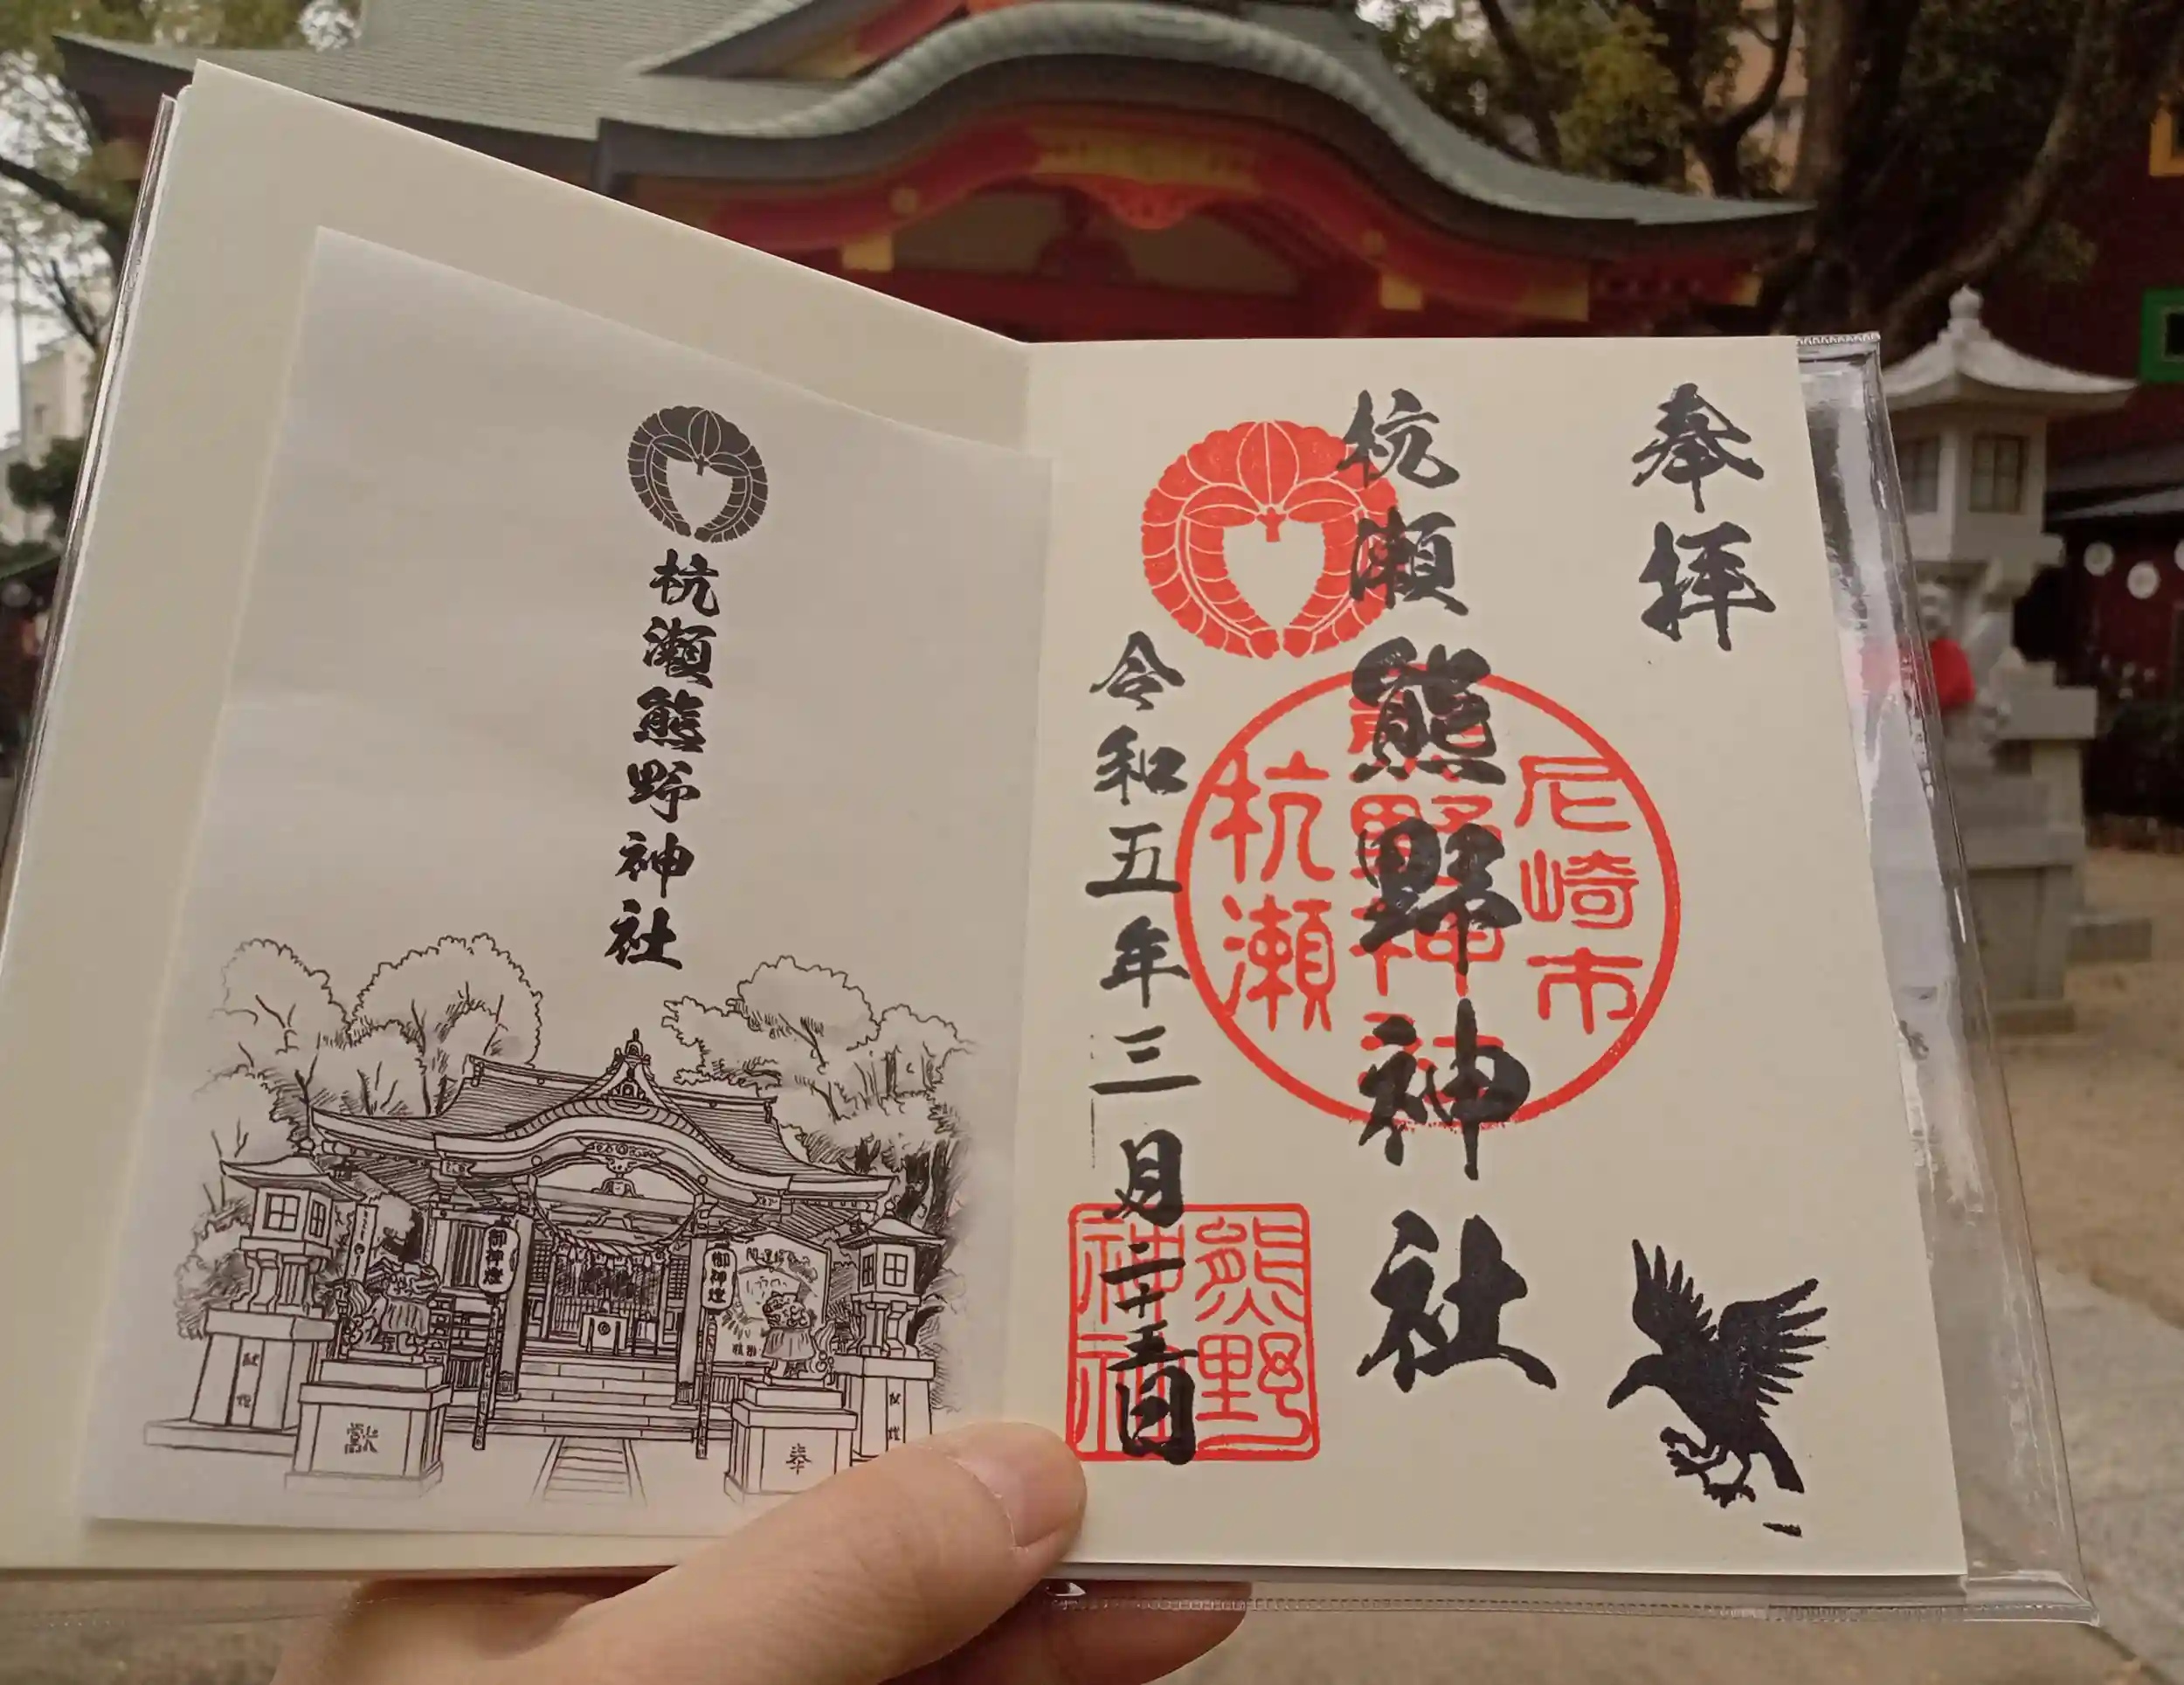 奉拝
杭瀬熊野神社
尼崎市
熊野神社
杭瀬
令和五年三月二十五日
熊野
神社
杭瀬熊野神社
御神燈
御神燈
献
奉